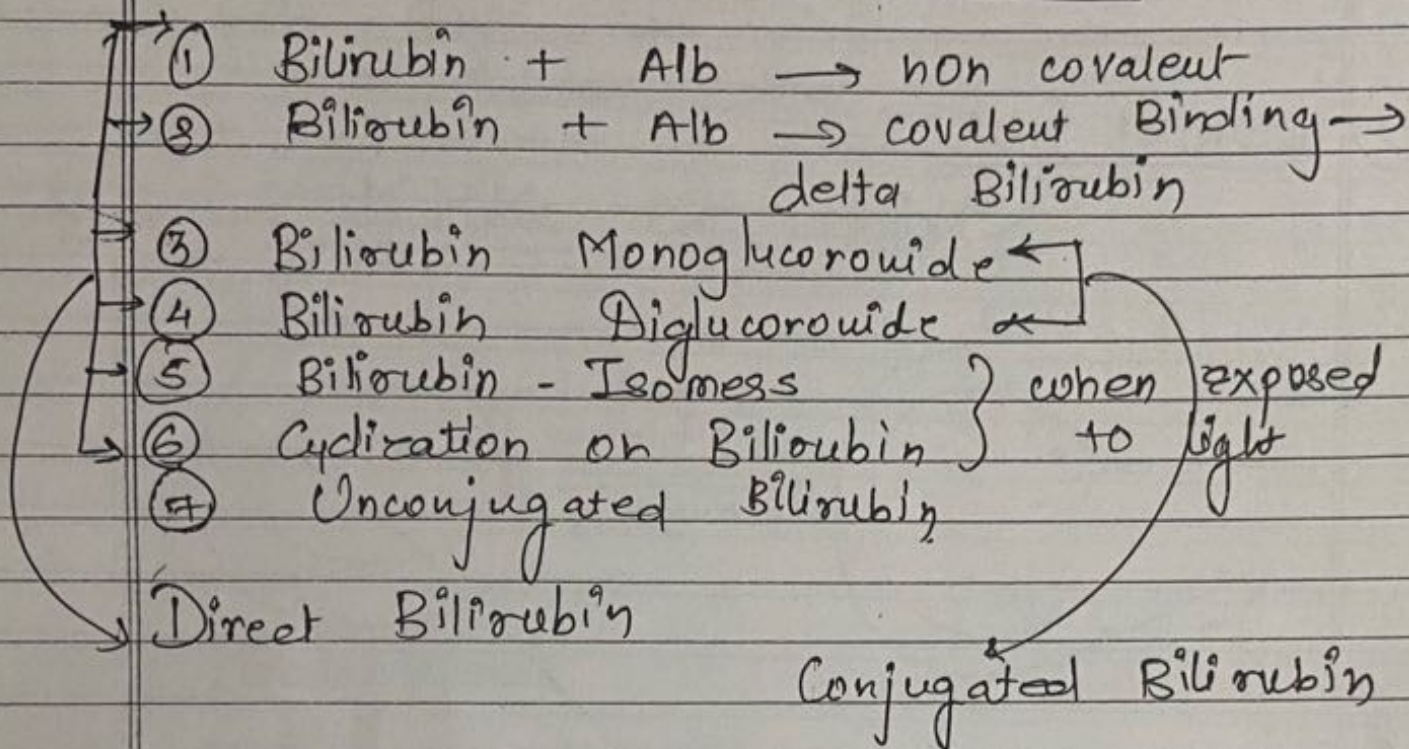 ① Bilirubin + Alb → non covalent
② Bilirubin + Alb → covalent Binding →
delta Bilirubin
③ Bilirubin Monoglucorouide
④ Bilirubin Diglucorouide
⑤ Bilirubin - Isomess } when exposed
⑥ Cyclization on Bilirubin } to light
⑦ Unconjugated Bilirubin
Direct Bilirubin
Conjugated Bilirubin